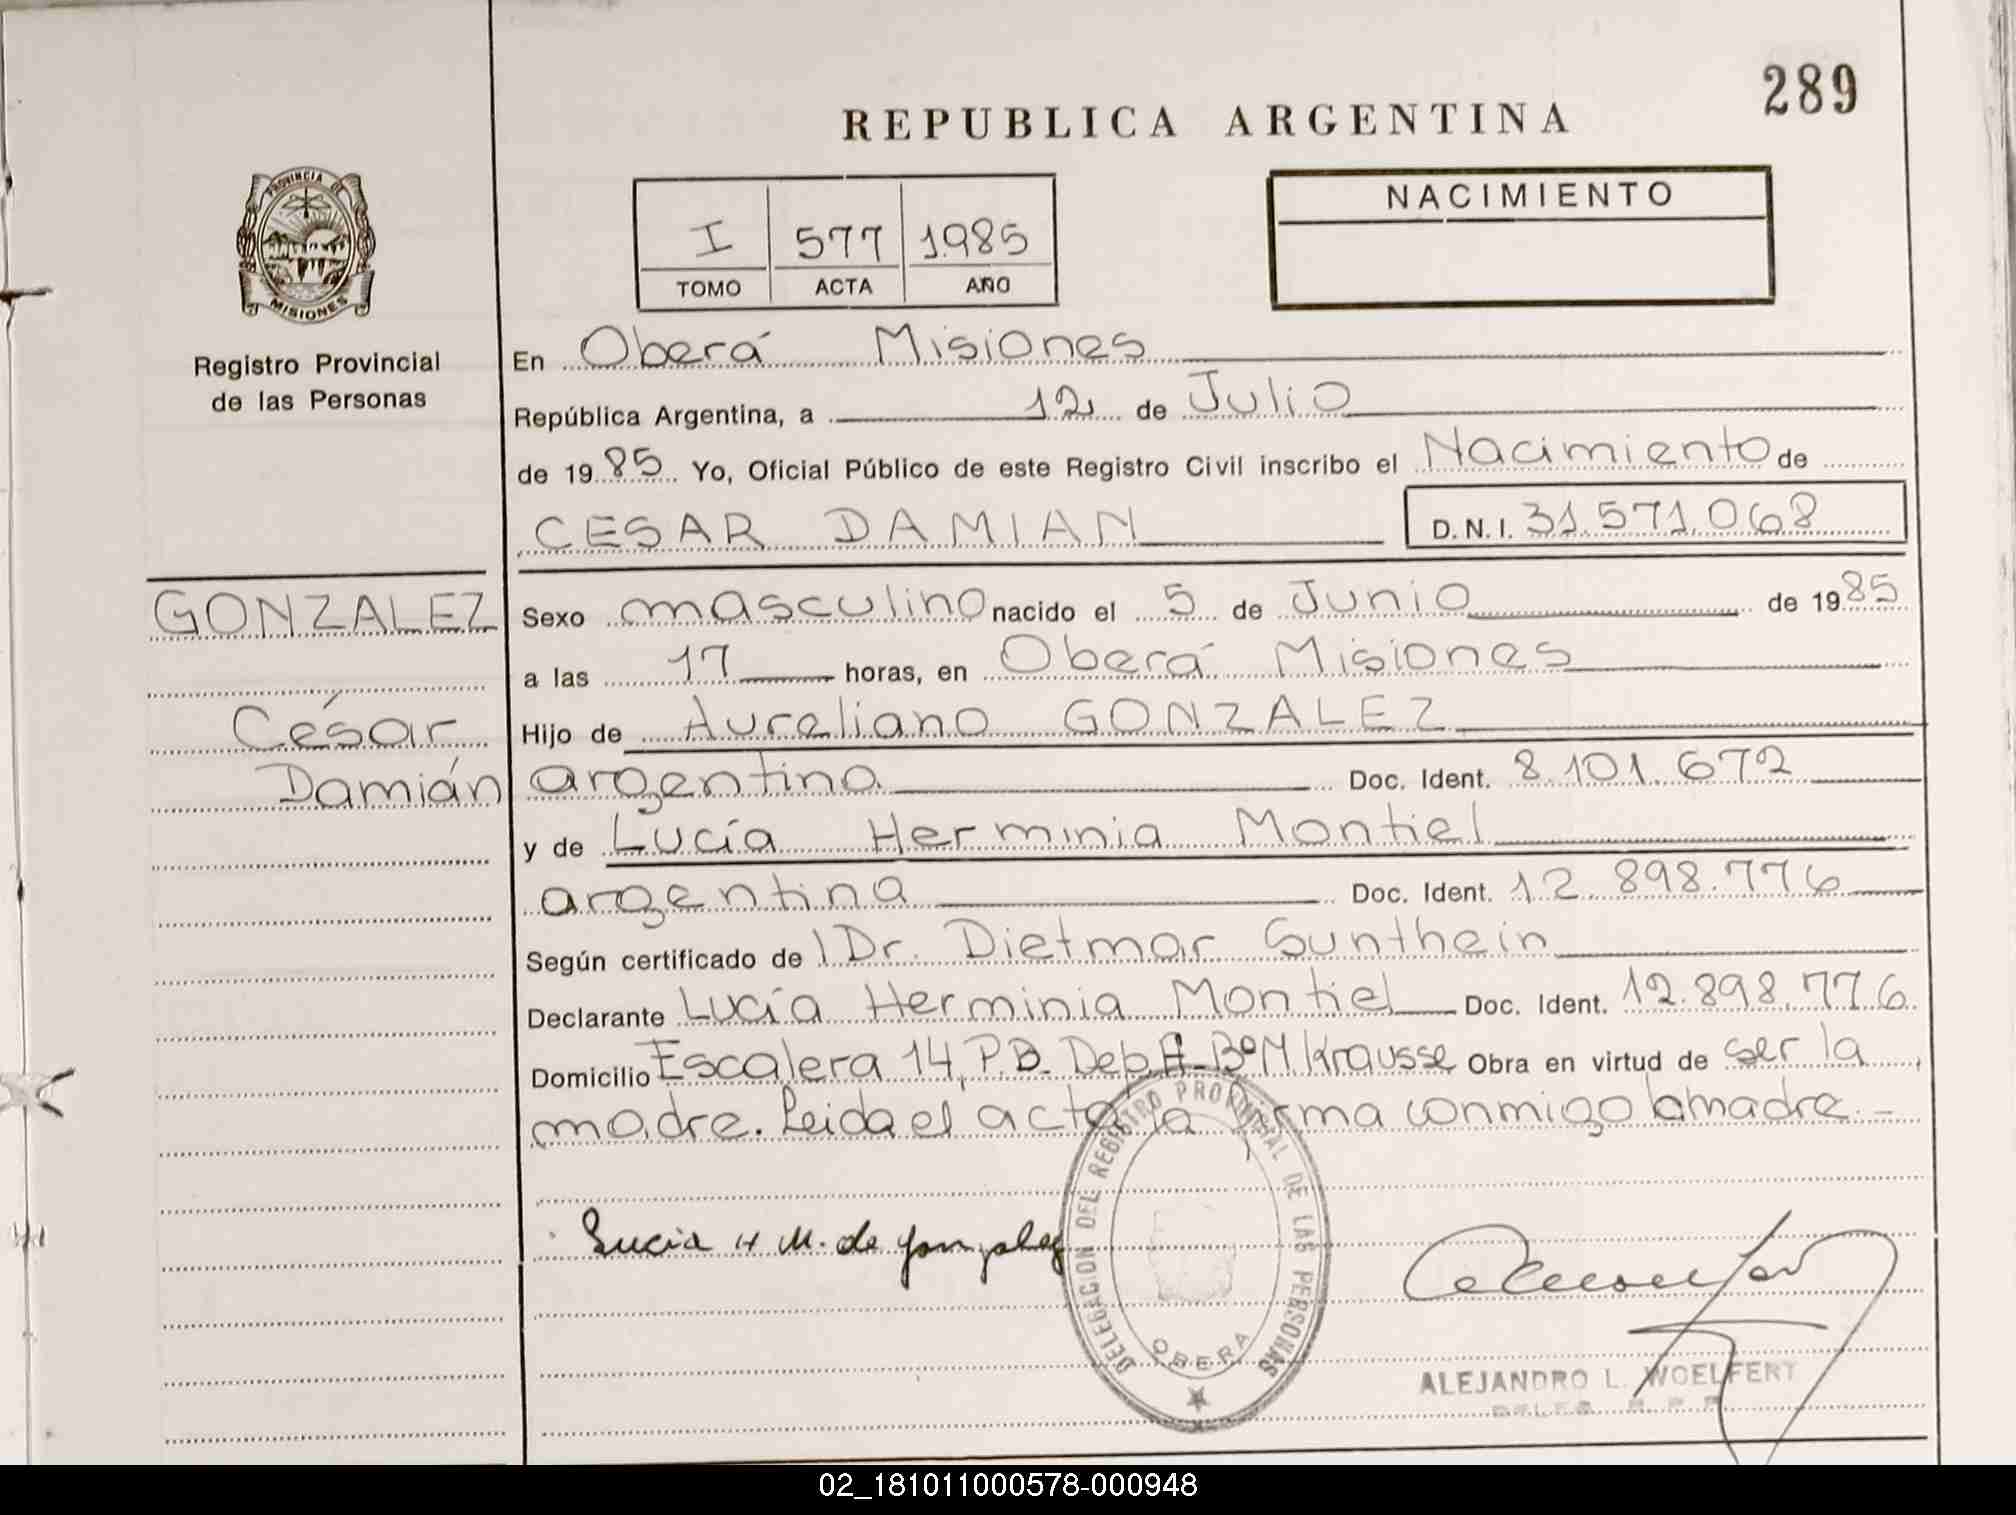 289
REPUBLICA ARGENTINA
PROVINCIA DE
MISIONES
Registro Provincial
de las Personas
I 577 1985
TOMO ACTA AÑO
NACIMIENTO
En Oberá Misiones
República Argentina, a 12 de Julio
de 1985 Yo, Oficial Público de este Registro Civil inscribo el Nacimiento de
CESAR DAMIAN D.N.I. 31.571.068
GONZALEZ
César
Damián
Sexo masculino nacido el 5 de Junio de 1985
a las 17 horas, en Oberá Misiones
Hijo de Aureliano GONZALEZ
argentino Doc. Ident. 8.101.672
y de Lucía Herminia Montiel
argentina Doc. Ident. 12.898.776
Según certificado de Dr. Dietmar Sunthein
Declarante Lucía Herminia Montiel Doc. Ident. 12.898.776
Domicilio Escalera 14, P.B. Dep. A - Bº M. Krausse Obra en virtud de ser la
madre. Leida el acta la firma conmigo la madre. -
Lucia H M. de Gonzalez
DELEGACION DEL REGISTRO PROVINCIAL DE LAS PERSONAS
OBERA
ALEJANDRO L. WOELFERT
02_181011000578-000948